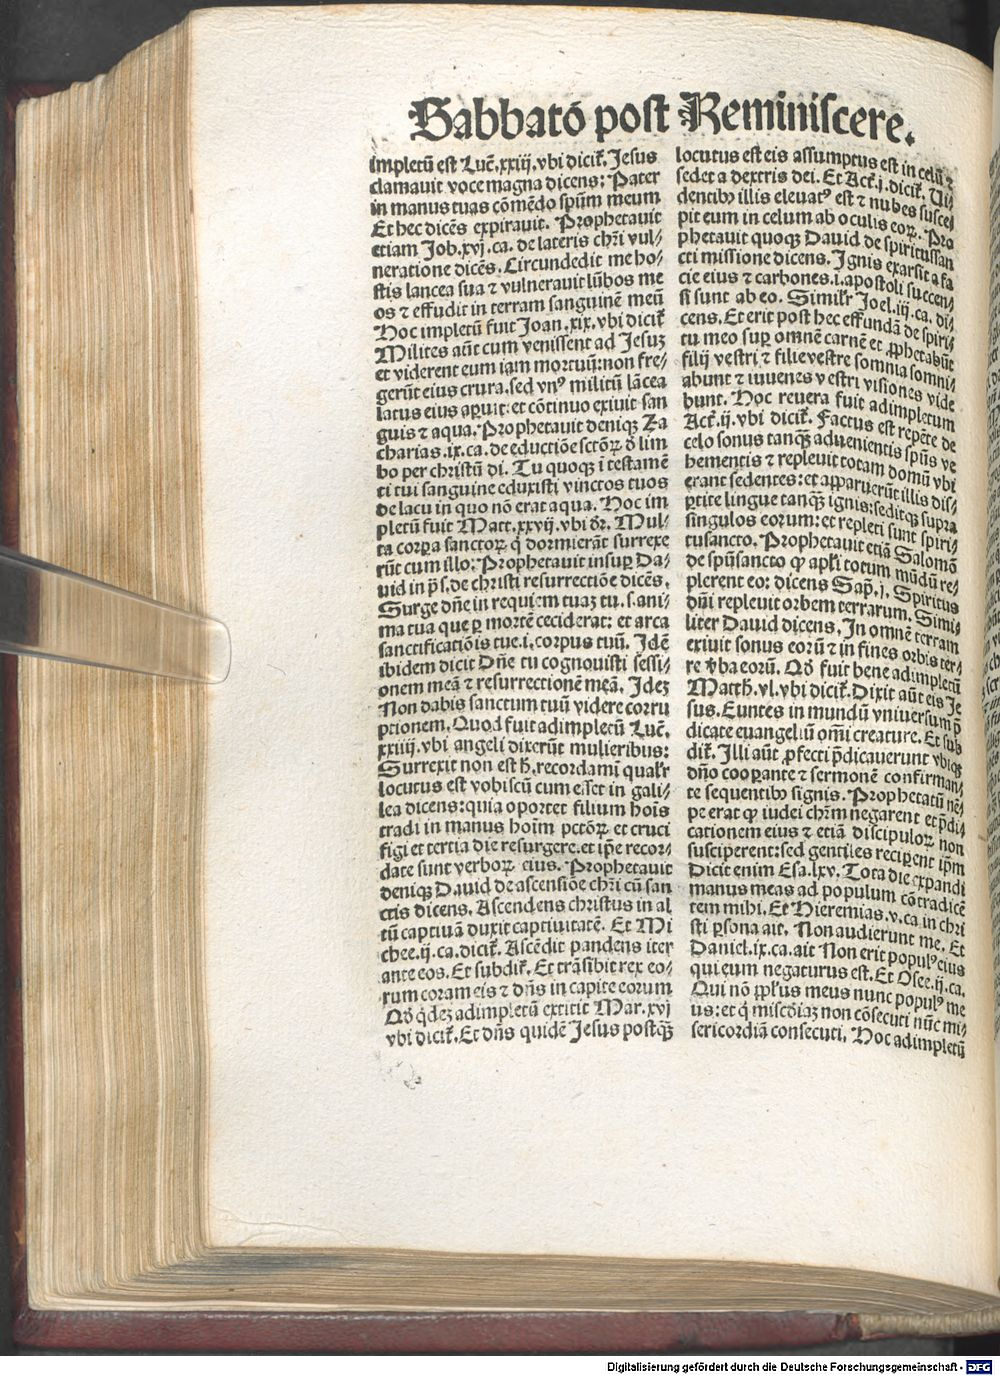 Sabbatō post Reminiscere.
impletū est Luc̄.xxiij.vbi dicit̄. Jesus
clamauit voce magna dicens: Pater
in manus tuas cōmēdo spūm meum
Et hec dicēs expirauit. Prophetauit
etiam Job.xvj.ca. de lateris chr̄i vul/
neratione dicēs. Circundedit me ho/
stis lancea sua ⁊ vulnerauit lūbos me
os ⁊ effudit in terram sanguinē meū
Hoc impletū fuit Joan.xix.vbi dicit̄
Milites aūt cum venissent ad Jesuꝫ
et viderent eum iam mortuū: non fre/
gerūt eius crura. sed vnꝰ militū lācea
latus eius aꝑuit: et cōtinuo exiuit san
guis ⁊ aqua. Prophetauit deniqꝫ Za
charias.ix.ca. de eductiōe sctōꝝ ō lim
bo per christū di. Tu quoqꝫ ī testamē
ti tui sanguine eduxisti vinctos tuos
de lacu in quo nō erat aqua. Hoc im
pletū fuit Matt.xxvij. vbi dr̄. Mul/
ta corꝑa sanctoꝝ q̄ dormierāt surrexe
rūt cum illo: Prophetauit insuꝑ Da/
uid in p̄s. de christi resurrectiōe dicēs.
Surge dn̄e in requiem tuaꝫ tu. s. ani/
ma tua que ꝑ mortē ceciderat: et arca
sanctificatiōis tue. i. corpus tuū. Idē
ibidem dicit Dn̄e tu cognouisti sessi/
onem meā ⁊ resurrectionē meā. Ideꝫ
Non dabis sanctum tuū videre corru
ptionem. Quod fuit adimpletū Luc̄.
xxiiij. vbi angeli dixerūt mulieribus:
Surrexit non est h̄. recordamī qualr̄
locutus est vobiscū cum esset in gali/
lea dicens: quia oportet filium hoīs
tradi in manus hoīm pctōꝝ et cruci
figi et tertia die resurgere. et ip̄e recor/
date sunt verboꝝ eius. Prophetauit
deniqꝫ Dauid de ascensiōe chr̄i cū san
ctis dicens. Ascendens christus in al
tū captiuā duxit captiuitatē. Et Mi
chee.ij.ca. dicit̄. Ascēdit pandens iter
ante eos. Et subdit̄. Et trāsibit rex eo/
rum coram eis ⁊ dn̄s in capite eorum
Qō q̄deꝫ adimpletū extitit Mar.xvj
vbi dicit̄. Et dn̄s quidē Jesus postqꝫ̄
locutus est eis assumptus est in celū ⁊
sedet a dextris dei. Et Act̄.j. dicit̄. Ui/
dentibꝰ illis eleuatꝰ est ⁊ nubes susce/
pit eum in celum ab oculis eoꝝ. Pro
phetauit quoqꝫ Dauid de spiritussan
cti missione dicens. Ignis exarsit a fa
cie eius ⁊ carbones. i. apostoli succen/
si sunt ab eo. Similr̄ Joel.iij.ca. di/
cens. Et erit post hec effundā de spiri/
tu meo suꝑ omnē carnē et ꝓphetabūt
filij vestri ⁊ filie vestre somnia somni/
abunt ⁊ iuuenes vestri visiones vide
bunt. Hoc reuera fuit adimpletum
Act̄.ij. vbi dicit̄. Factus est repēte de
celo sonus tanqꝫ̄ aduenientis spūs ve
hementis ⁊ repleuit totam domū vbi
erant sedentes: et apparuerūt illis dis/
ꝑtite lingue tanqꝫ̄ ignis: seditqꝫ supra
singulos eorum: et repleti sunt spiri/
tusancto. Prophetauit etiā Salomō
de spūsancto ꝙ apl̄i totum mūdū re/
plerent eo: dicens Sap̄.j. Spiritus
dn̄i repleuit orbem terrarum. Simi/
liter Dauid dicens. In omnē terram
exiuit sonus eorū ⁊ in fines orbis ter/
re v̄ba eorū. Qō fuit bene adimpletū
Matth̄. vl. vbi dicit̄. Dixit aūt eis Je
sus. Euntes in mundū vniuersum p̄
dicate euangeliū om̄i creature. Et sub
dit̄. Illi aūt ꝓfecti p̄dicauerunt vbiqꝫ
dn̄o cooꝑante ⁊ sermonē confirman/
te sequentibꝰ signis. Prophetatū nē/
pe erat ꝙ iudei chr̄m negarent et p̄di/
cationem eius ⁊ etiā discipuloꝝ non
susciperent: sed gentiles reciꝑent ip̄m
Dicit enim Esa.lxv. Tota die expandi
manus meas ad populum cōtradicē
tem mihi. Et Hieremias.v.ca in chr̄i
sti ꝑsona ait. Non audierunt me. Et
Daniel.ix.ca. ait Non erit populꝰ eius
qui eum negaturus est. Et Osee.ij.ca.
Qui nō ꝓpl̄us meus nunc populꝰ me
us: et q̄ misc̄diaꝫ non cōsecuti nūc mi/
sericordiā consecuti. Hoc adimpletū
Digitalisierung gefördert durch die Deutsche Forschungsgemeinschaft - DFG